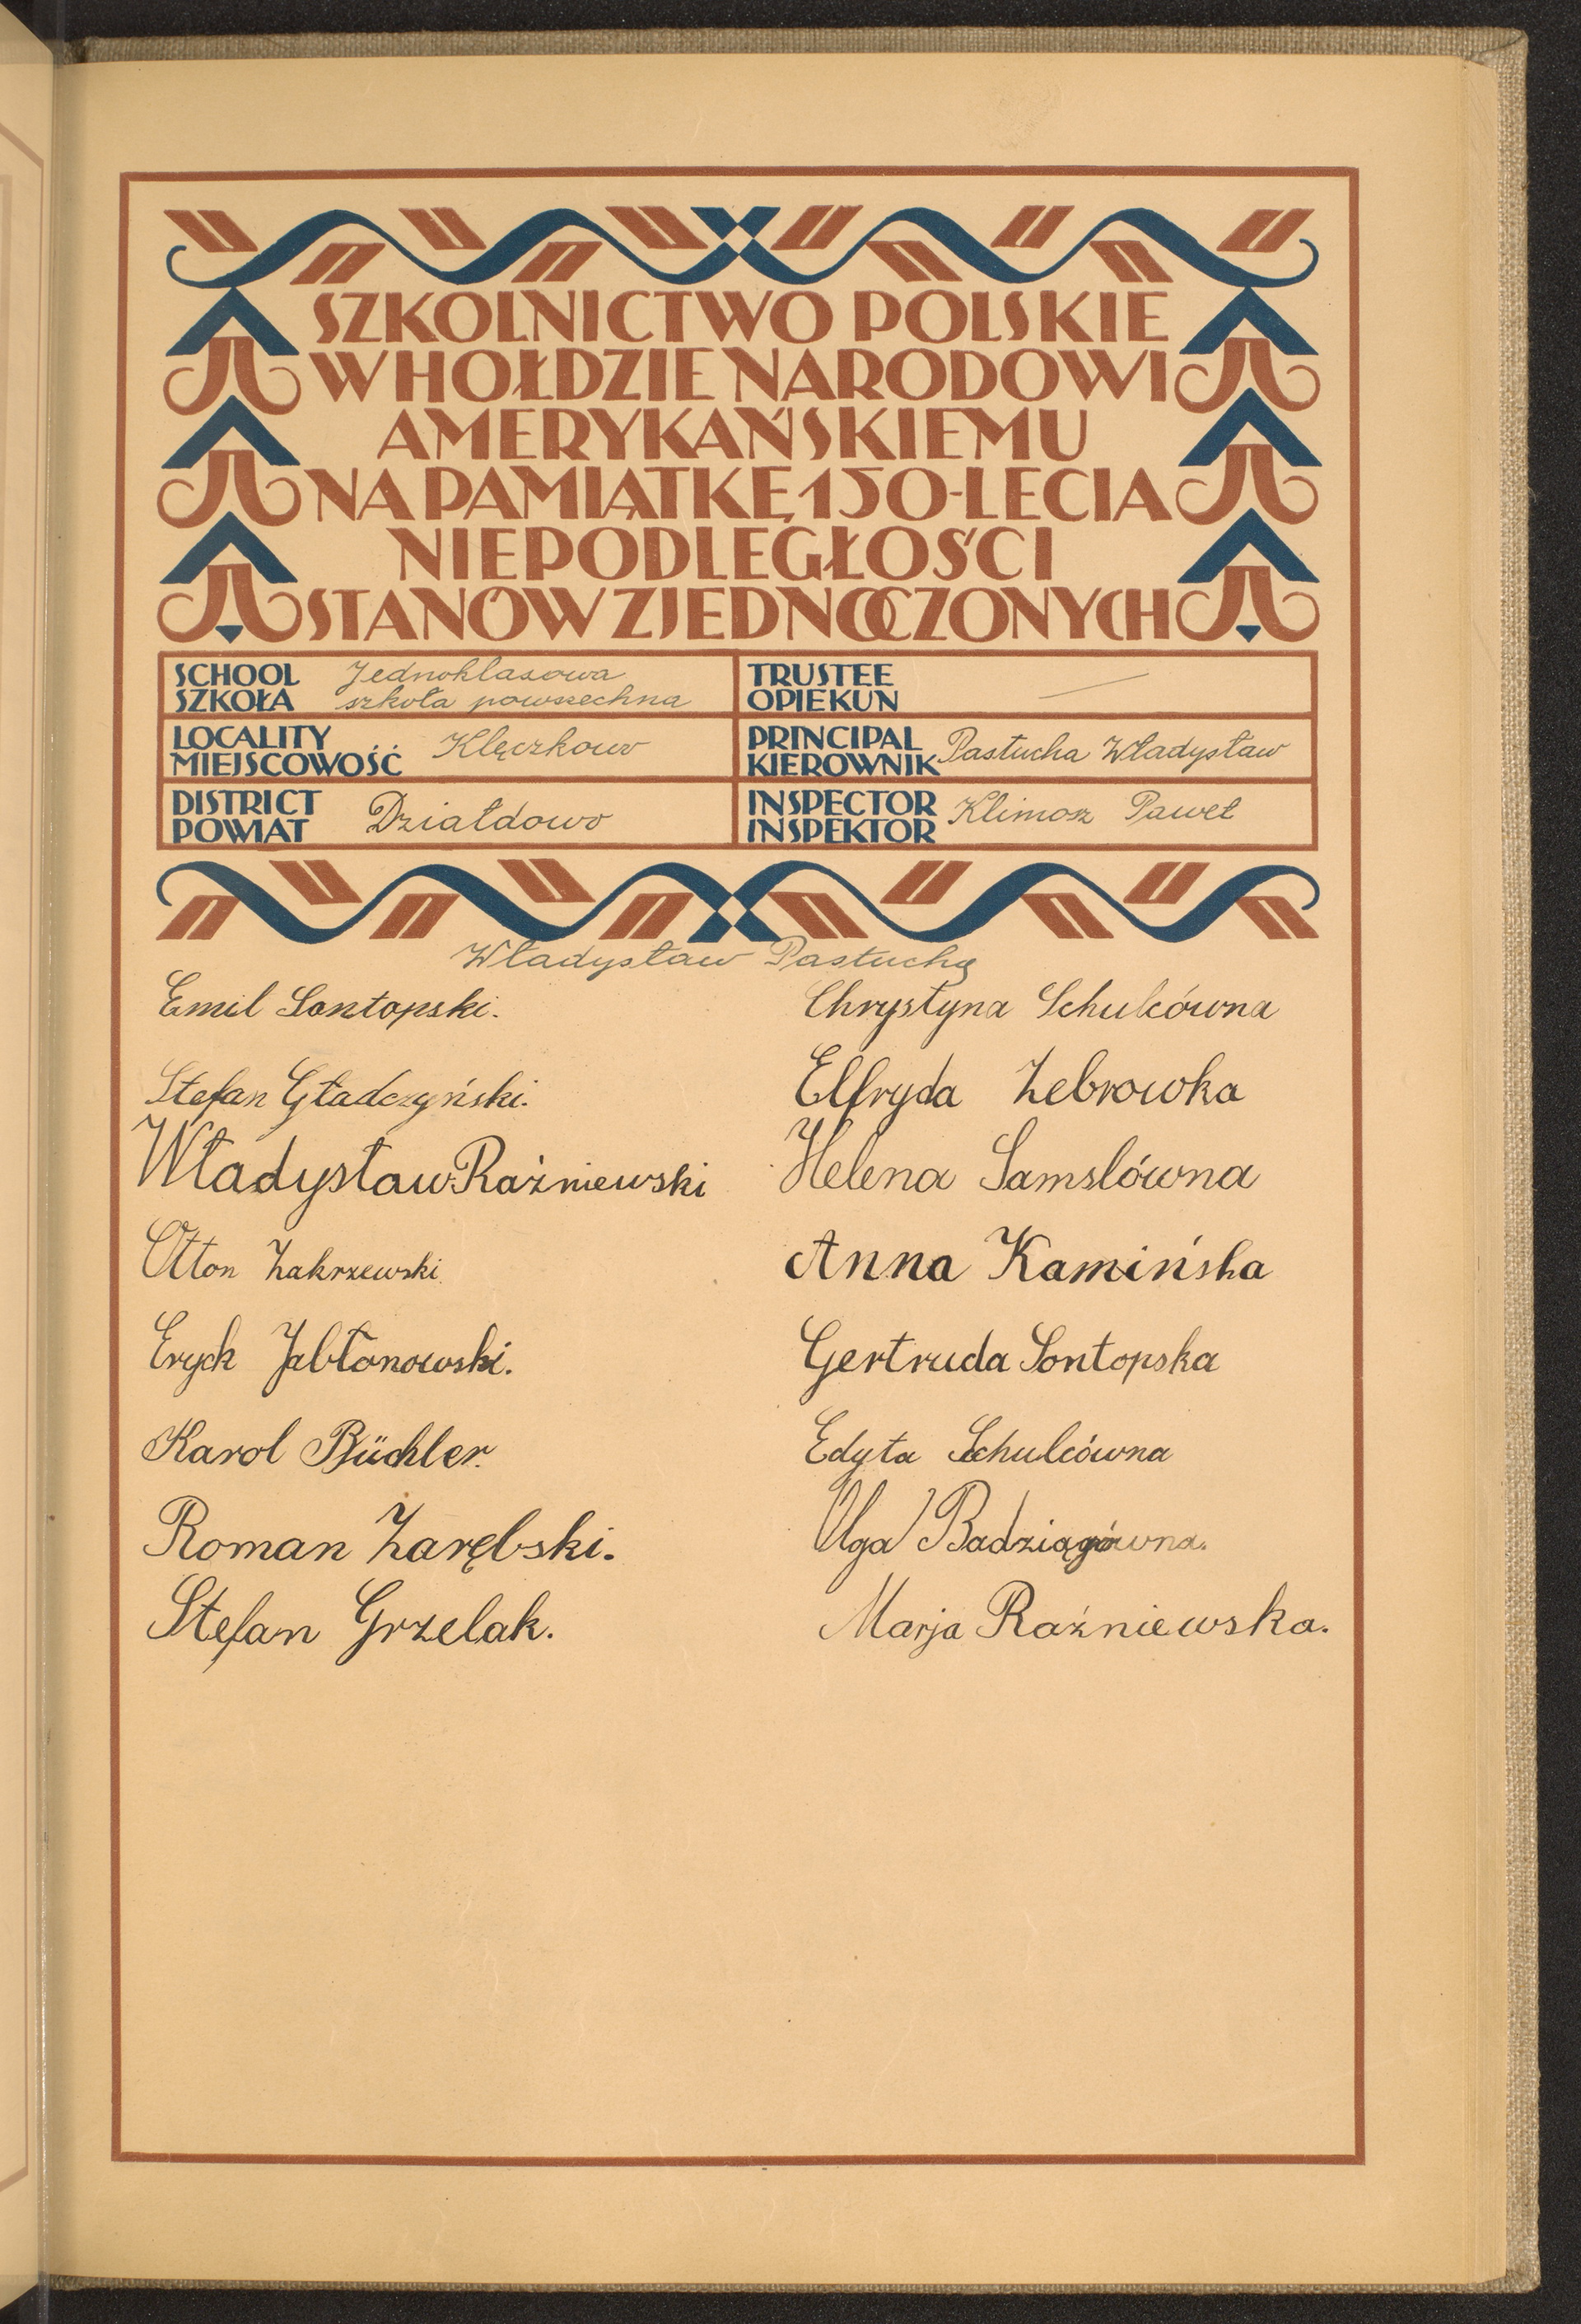 SZKOLNICTWO POLSKIE
W HOŁDZIE NARODOWI
AMERYKAŃSKIEMU
NA PAMIĄTKĘ 150-LECIA
NIEPODLEGŁOŚCI
STANÓW ZJEDNOCZONYCH
SCHOOL
SZKOŁA
Jednoklasowa
szkoła powszechna
TRUSTEE
OPIEKUN
LOCALITY
MIEJSCOWOŚĆ
Klęczkowo
PRINCIPAL
KIEROWNIK
Pastucha Władysław
DISTRICT
POWIAT
Działdowo
INSPECTOR
INSPEKTOR
Klimosz Paweł
Władysław Pastucha
Emil Sontopski.
Stefan Gładczyński.
Władysław Raźniewski
Otton Zakrzewski
Eryck Jabłonowski.
Karol Büchler.
Roman Zarębski.
Stefan Grzelak.
Chrystyna Schulcówna
Elfryda Zebrowka
Helena Samslówna
Anna Kamińska
Gertruda Sontopska
Edyta Schulcówna
Olga Badziągówna.
Marja Raźniewska.